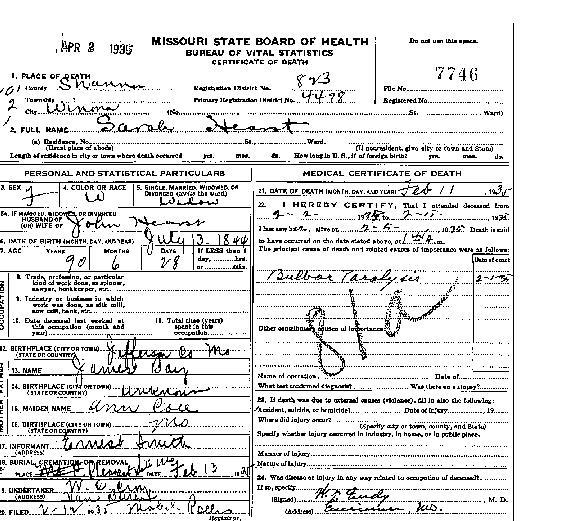 APR 2 1935
MISSOURI STATE BOARD OF HEALTH
BUREAU OF VITAL STATISTICS
CERTIFICATE OF DEATH
Do not use this space.
7746
1. PLACE OF DEATH
County Shannon Registration District No. 823 File No.
Township Primary Registration District No. 4498 Registered No.
City Winona (No. St. Ward)
2. FULL NAME Sarah Hearst
(a) Residence, No. St. Ward.
(Usual place of abode) (If nonresident, give city or town and State)
Length of residence in city or town where death occurred yrs. mos. ds. How long in U. S., if of foreign birth? yrs. mos. ds.
PERSONAL AND STATISTICAL PARTICULARS
3. SEX F
4. COLOR OR RACE W
5. SINGLE, MARRIED, WIDOWED, OR DIVORCED (write the word) Widow
5A. IF MARRIED, WIDOWED, OR DIVORCED
HUSBAND OF
(OR) WIFE OF John Hearst
6. DATE OF BIRTH (MONTH, DAY, AND YEAR) July 13-1844
7. AGE YEARS MONTHS DAYS If LESS than 1 day, hrs. or min.
90 6 28
OCCUPATION
8. Trade, profession, or particular kind of work done, as spinner, sawyer, bookkeeper, etc.
9. Industry or business in which work was done, as silk mill, saw mill, bank, etc.
10. Date deceased last worked at this occupation (month and year)
11. Total time (years) spent in this occupation
12. BIRTHPLACE (CITY OR TOWN) Jefferson Co Mo
(STATE OR COUNTRY)
13. NAME James
14. BIRTHPLACE (CITY OR TOWN) Unknown
(STATE OR COUNTRY)
15. MAIDEN NAME Ann
16. BIRTHPLACE (CITY OR TOWN) Mo
(STATE OR COUNTRY)
17. INFORMANT Ernest Smith
(ADDRESS)
18. BURIAL, CREMATION, OR REMOVAL
PLACE Mt Pleasant DATE Feb 13
19. UNDERTAKER W.
(ADDRESS) Van Buren
20. FILED 2-12 35
Registrar.
MEDICAL CERTIFICATE OF DEATH
21. DATE OF DEATH (MONTH, DAY, AND YEAR) Feb 11 1935
22. I HEREBY CERTIFY, That I attended deceased from
I last saw alive on 2-5 1935 Death is said
to have occurred on the date stated above, at m.
The principal cause of death and related causes of importance were as follows:
Date of onset
Bulbar Paralysis
Other contributory causes of importance:
Name of operation Date of
What test confirmed diagnosis? Was there an autopsy?
23. If death was due to external causes (violence), fill in also the following:
Accident, suicide, or homicide? Date of injury 19
Where did injury occur?
(Specify city or town, county, and State)
Specify whether injury occurred in industry, in home, or in public place.
Manner of injury
Nature of injury
24. Was disease or injury in any way related to occupation of deceased?
If so, specify
(Signed) M. D.
(Address) Mo.